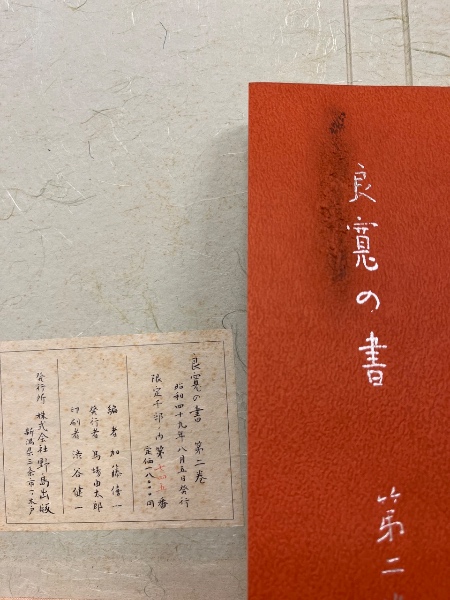 良寛の書
第二
良寛の書 第二巻
昭和四十九年八月五日発行
限定千部ノ内第七四五番
定価一八〇〇〇円
編者 加藤僖一
発行者 馬場由太郎
印刷者 渋谷健一
発行所 株式会社野島出版
新潟県三条市一ノ木戸